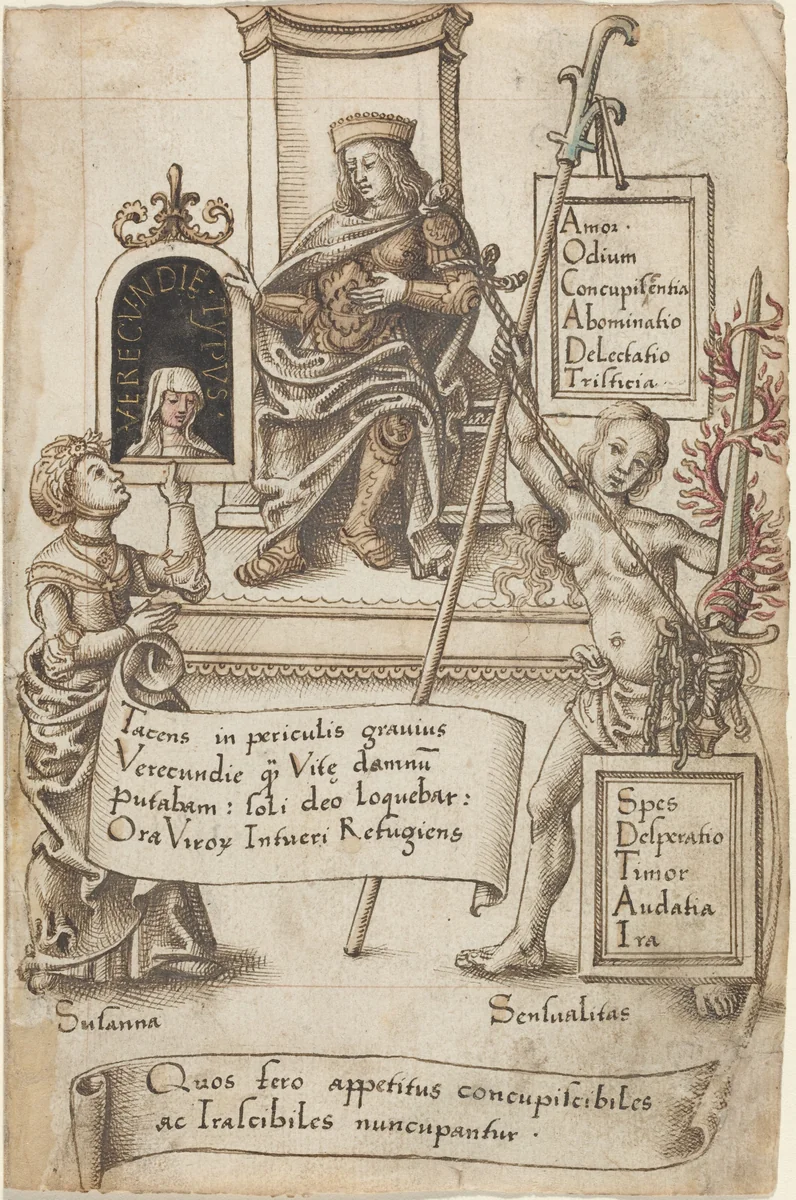 VERECVNDIĘ · TYPVS ·
Amor ·
Odium
Concupiſcẽntia
Abominatio
Delectatio
Triſticia
Tacens in periculis gravius
Verecundie ꝙ Vitę damnū
Putabam : ſoli deo loquebar :
Ora Viroꝝ Intueri Refugiens
Spes
Deſperatio
Timor
Audatia
Ira
Suſanna
Senſualitas
Quos fero appetitus concupiſcibiles
ac Iraſcibiles nuncupantur ·